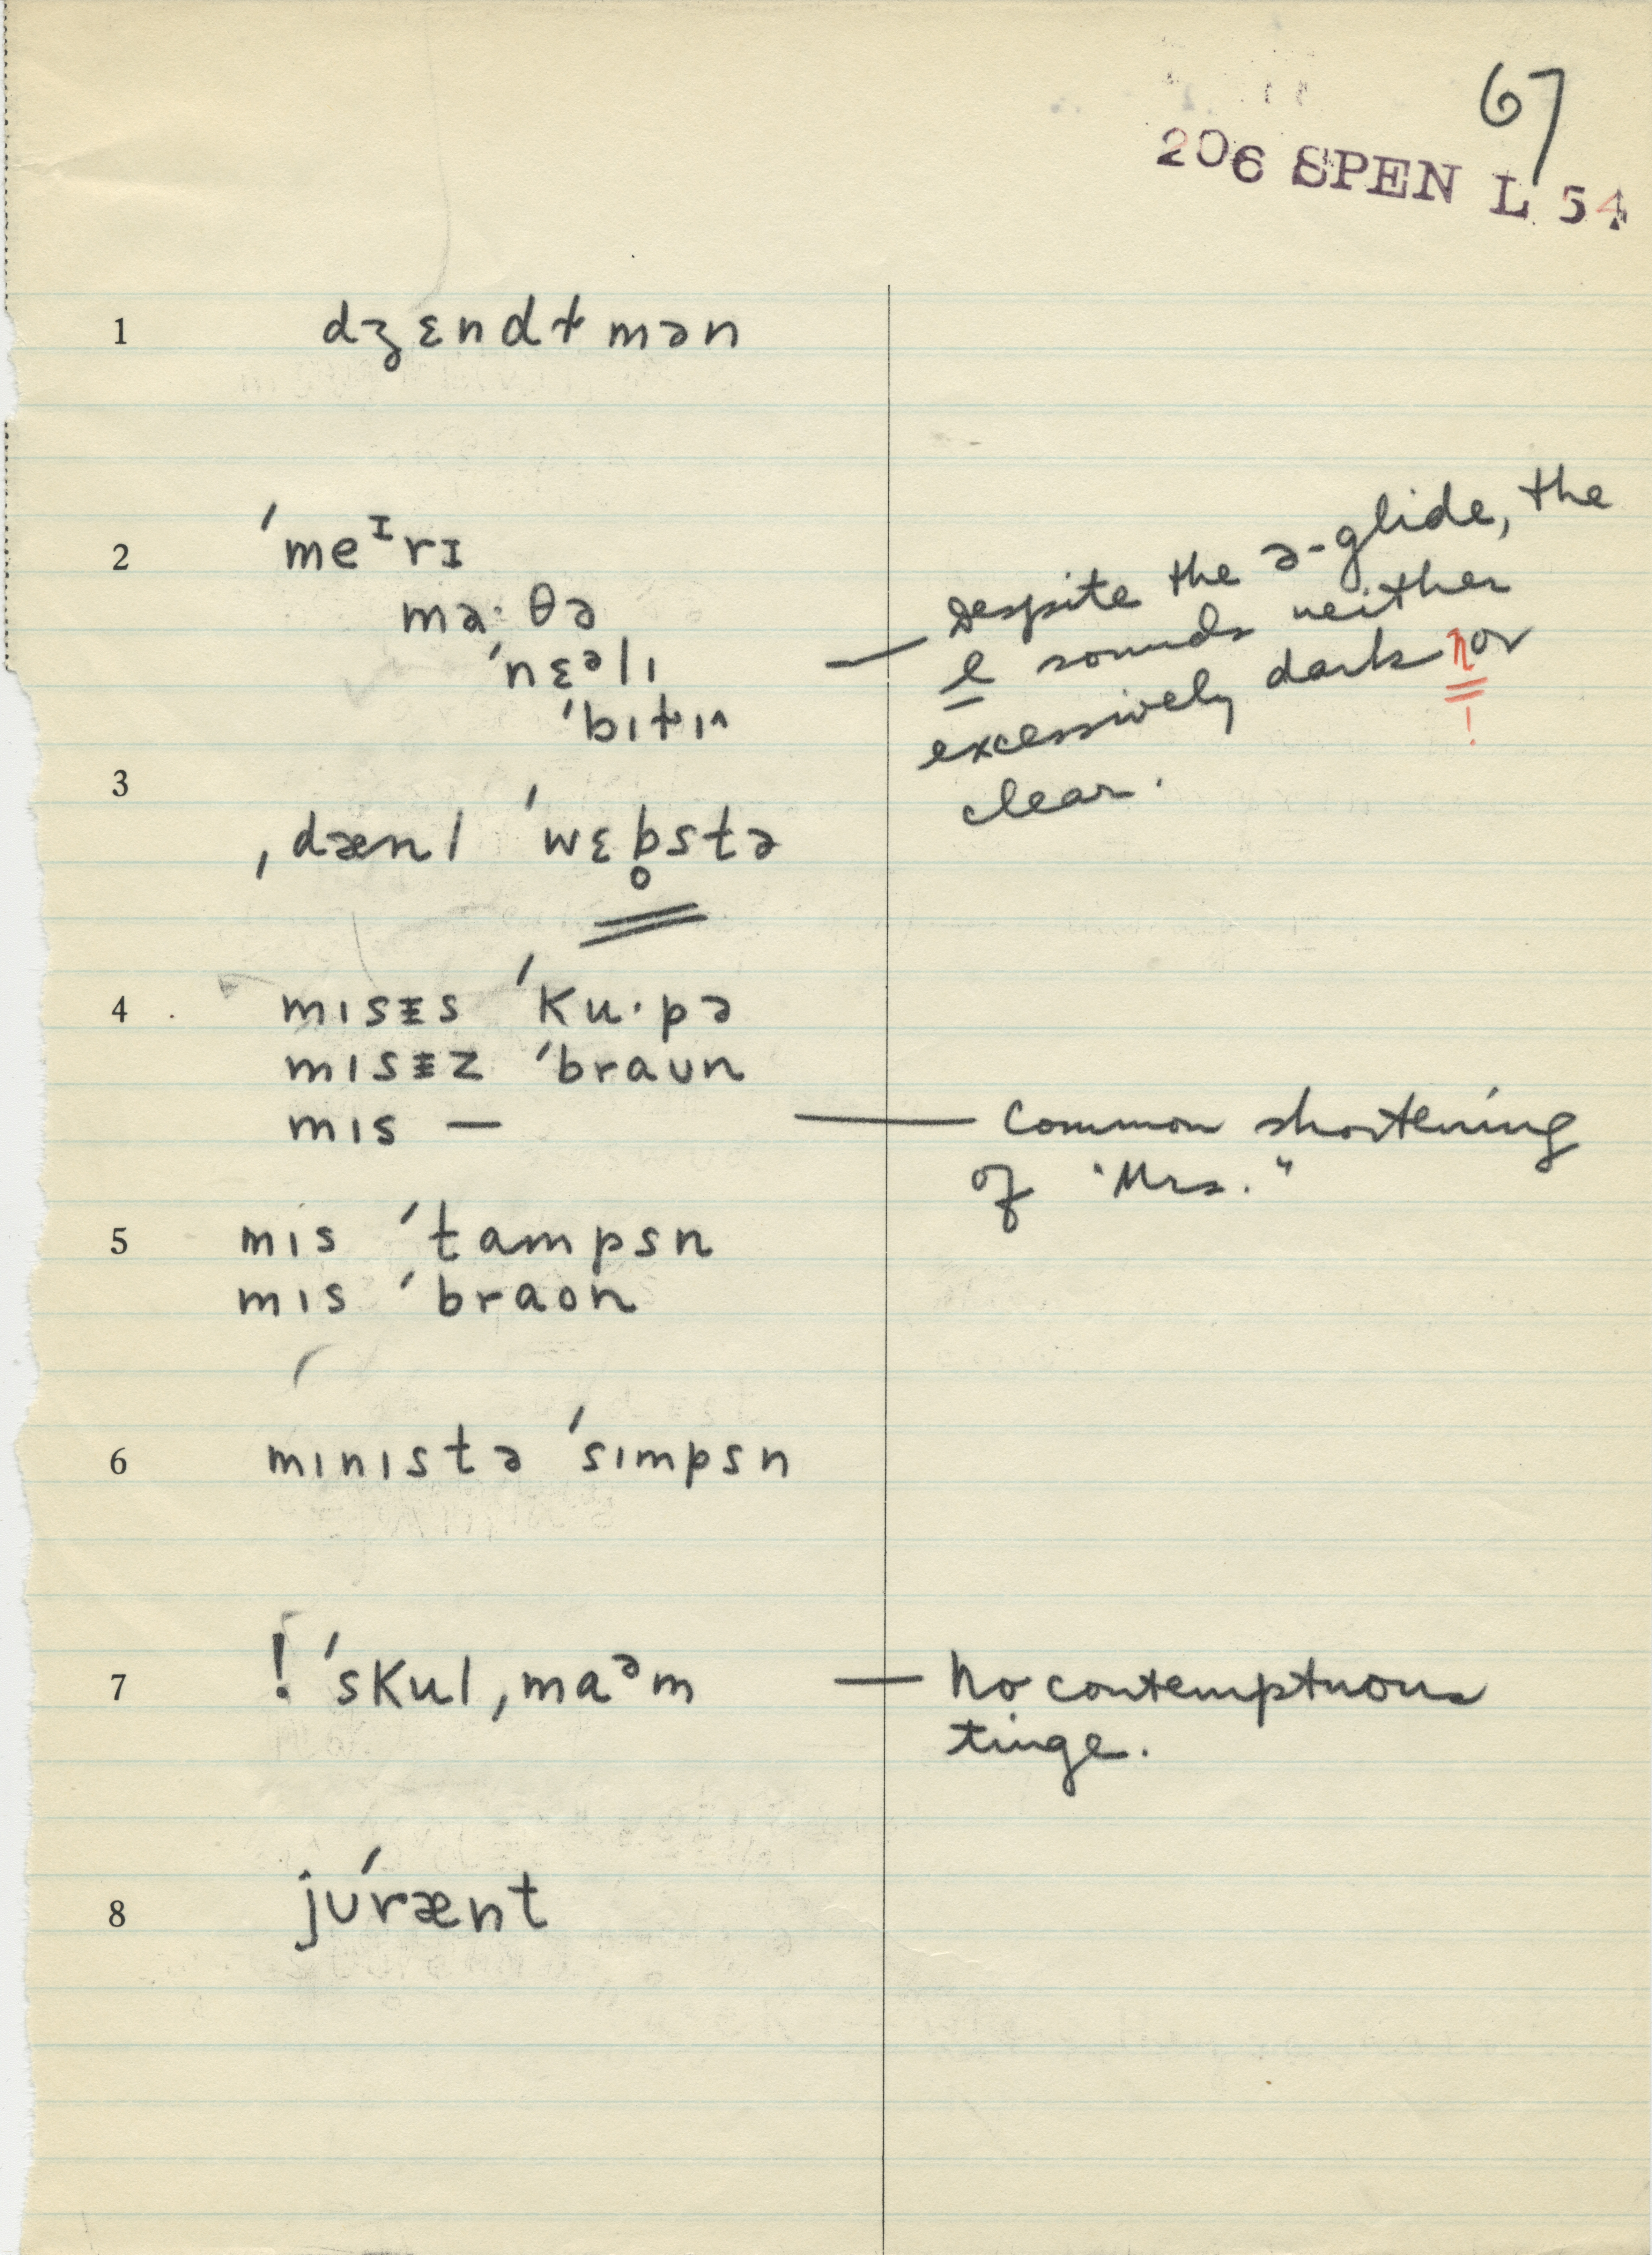 67
206 SPEN L 54
1 dʒɛndɫmən
2 ˈmeᶦrɪ
mə·θə
ˈnɛᵊlɪ — Despite the ə-glide, the
l sounds neither
excessively dark nor
!
clear.
ˈbɪɫɪ^
3 ˌdænl ˈwɛb̥stə
4 mɪsᵻs ˈku·pə
mɪsᵻz ˈbraun
mɪs — — Common shortening
of "Mrs."
5 mɪs ˈtampsn
mɪs ˈbraon
6 mɪnɪstə ˈsɪmpsn
7 ! ˈskulˌmaᵊm — No contemptuous
tinge.
8 jʊˈrænt